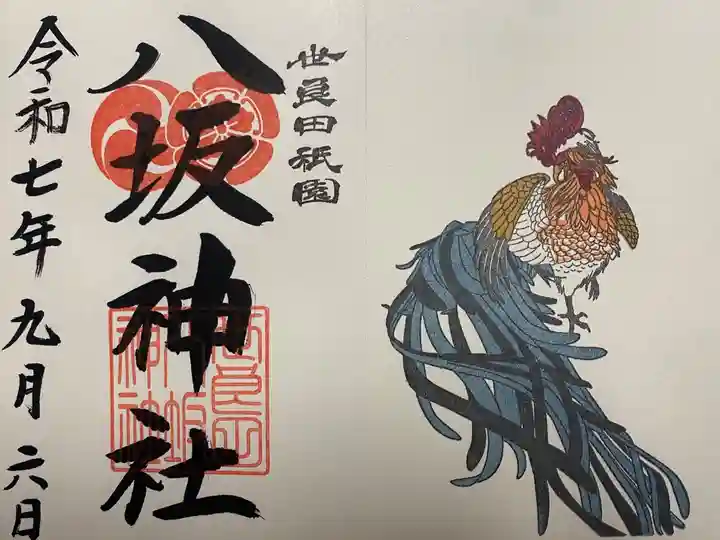 世良田祇園
八坂神社
令和七年九月六日